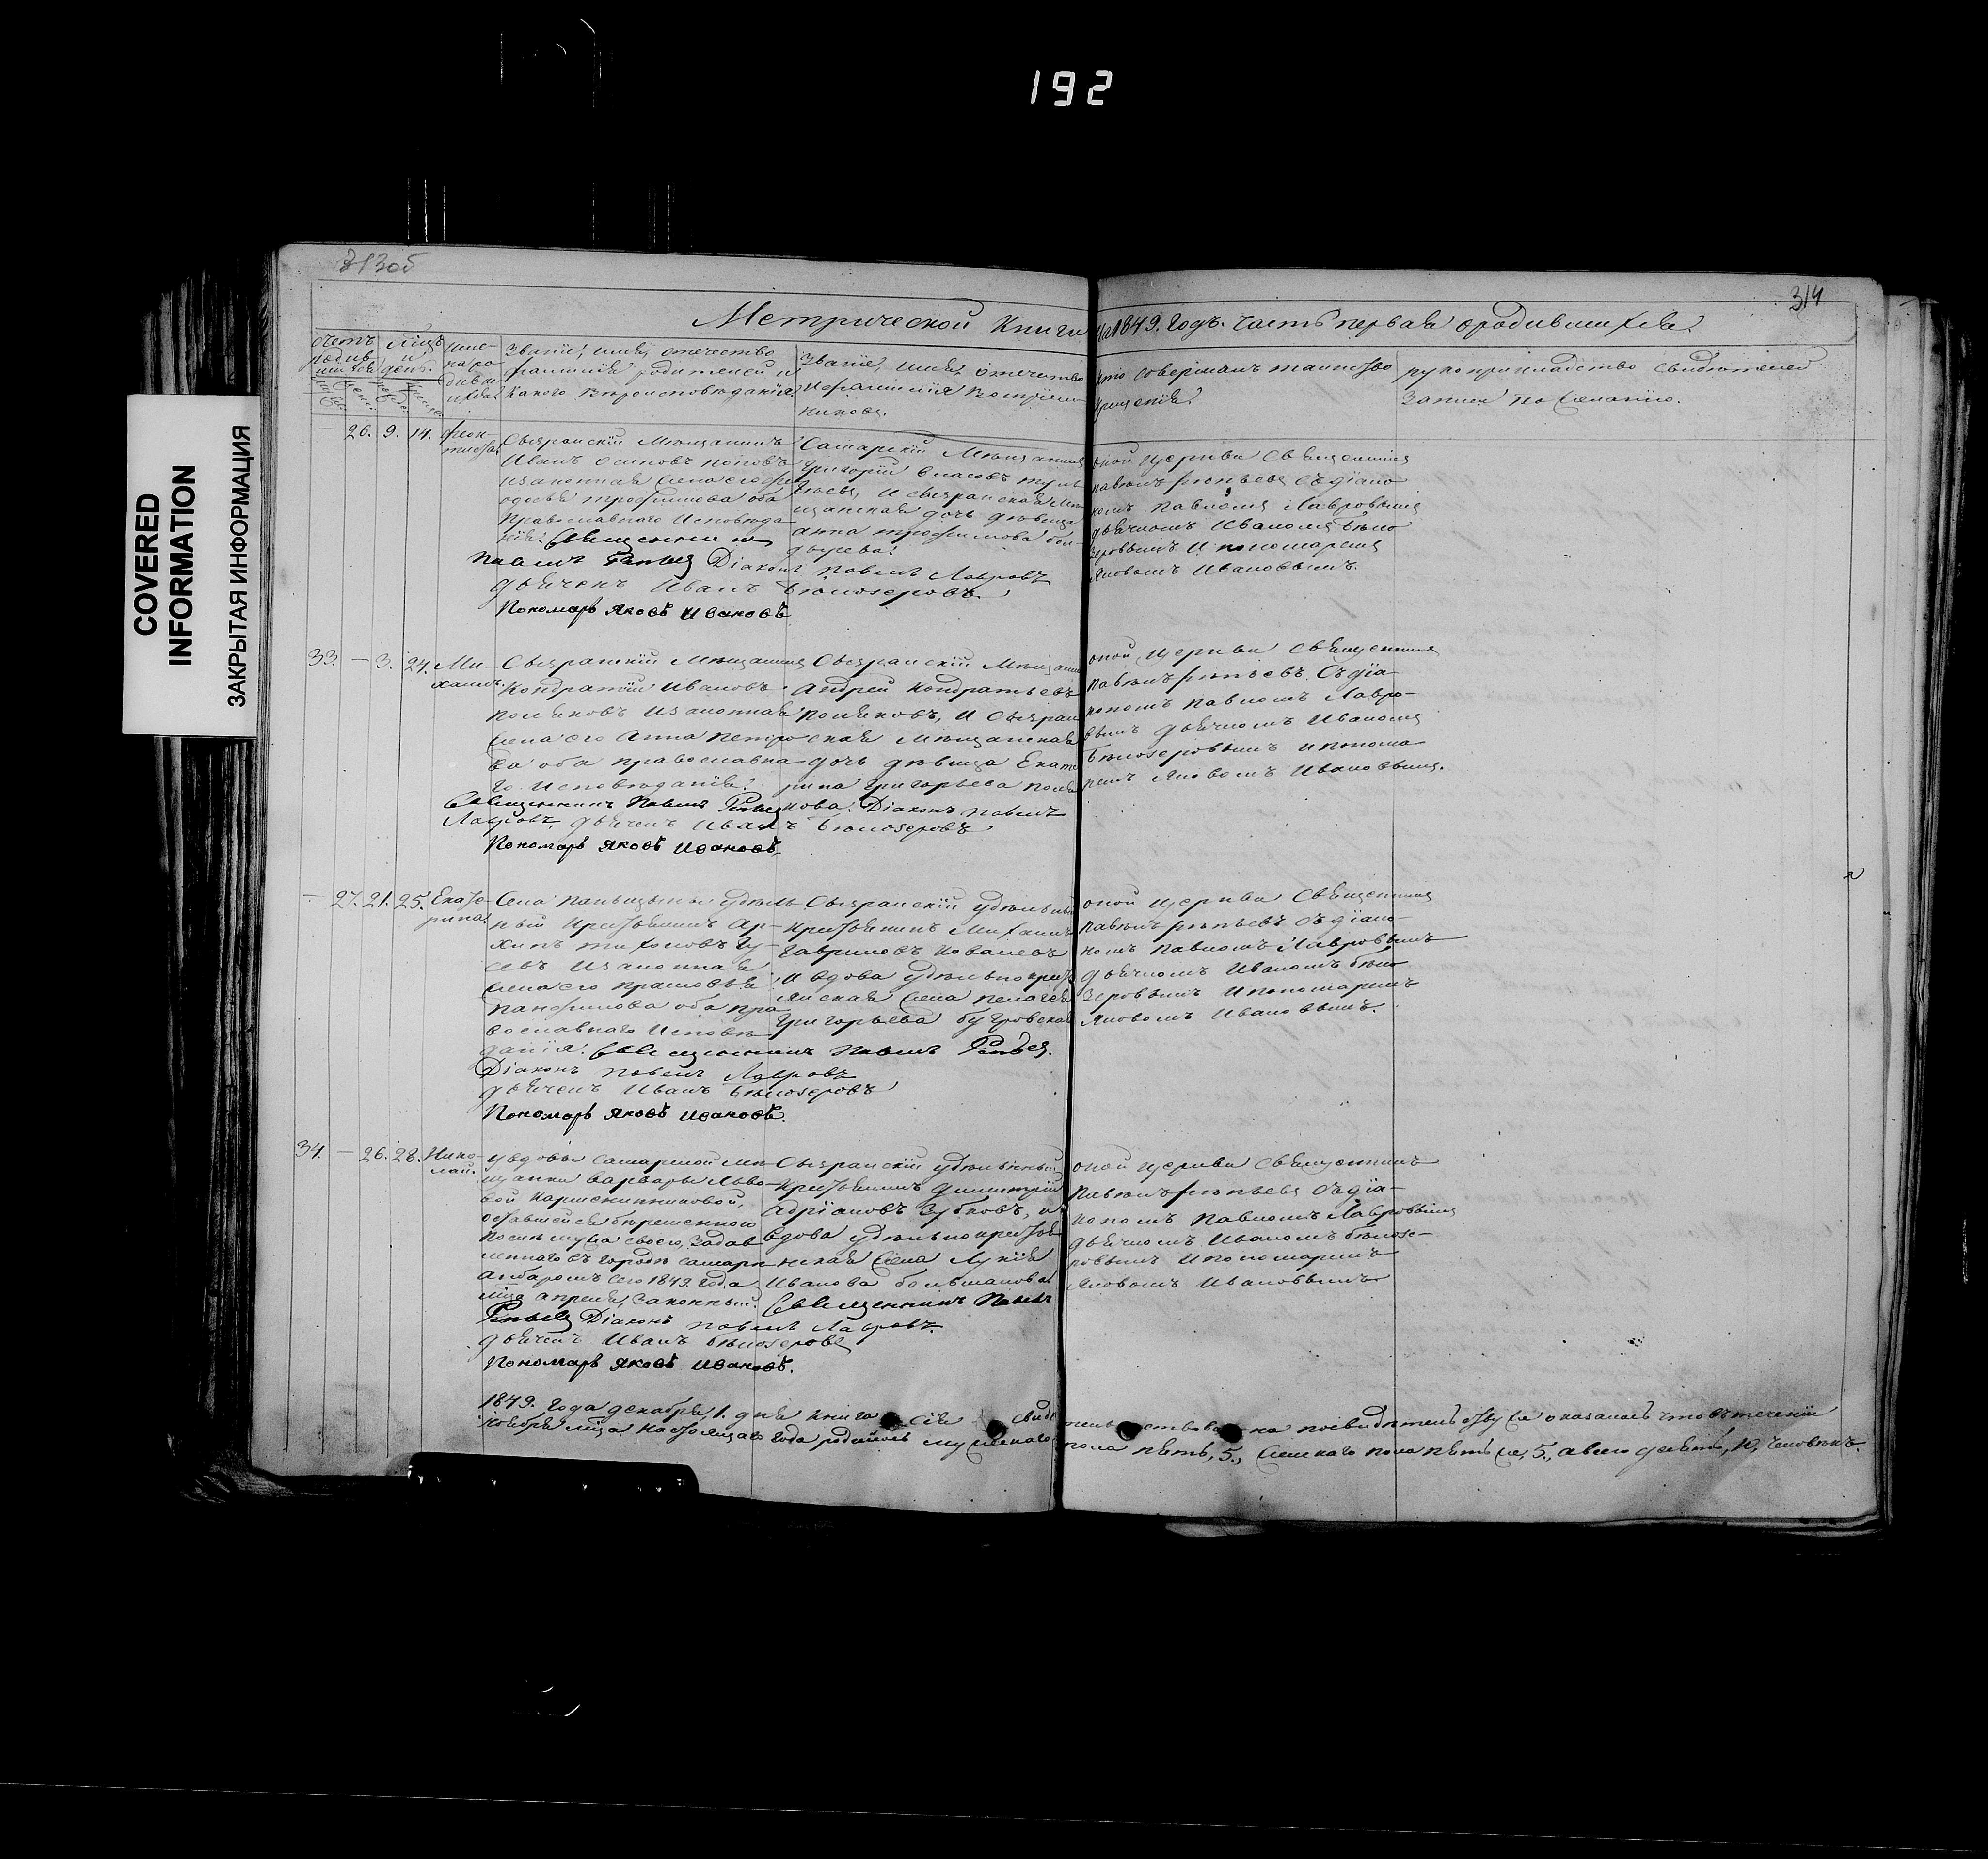 192
COVERED
INFORMATION
ЗАКРЫТАЯ ИНФОРМАЦИЯ
313об
314
Метрической Книги на 1849. Годъ. часть первая о родившихся.
Званіе, имя, отечество
фамилія родителей и
какого вѣроисповѣданія
Званіе, имя, отечество
и фамилія воспріем-
никовъ
кто совершалъ таинство
крещенія
рукоприкладство свидѣтелей
записи по желанію.
26. 9. 14.
Сызранскій мѣщанинъ
Иванъ Осиповъ Поповъ
и законная жена его Ѳе
одосья Трофимова оба
Православнаго Исповѣда
нія. Священникъ
Павелъ Діаконъ Павелъ Лавровъ
дьячекъ Иванъ Бѣлозеровъ
Пономарь Яковъ Ивановъ
Самарскій мѣщанинъ
Григорій Власовъ
и сызранская мѣ
щанская дочь дѣвица
Анна Трофимова
оной церкви Священникъ
съ діако
номъ Павломъ Лавровымъ
дьячкомъ Иваномъ Бѣло
зеровымъ и пономаремъ
Яковомъ Ивановымъ.
33. — 3. 24. Ми-
хаилъ.
Сызранскій мѣщанинъ
Кондратій Ивановъ
Поляковъ и законная
жена его Анна Петро
ва оба православна
го Исповѣданія.
Священникъ Павелъ
Діаконъ Павелъ
Лавровъ, дьячекъ Иванъ Бѣлозеровъ
Пономарь Яковъ Ивановъ.
Сызранскій мѣщанинъ
Андрей Кондратьевъ
Поляковъ, и сызран
ская мѣщанская
дочь дѣвица Екате
рина Григорьева Поля
кова.
оной церкви Священникъ
съ діа-
кономъ Павломъ Лавро-
вымъ дьячкомъ Иваномъ
Бѣлозеровымъ и понома
ремъ Яковомъ Ивановымъ.
— 27. 21. 25. Екате-
рина.
Села Паньшина удѣль
ный крестьянинъ Ар-
хипъ Тихоновъ Гу-
севъ и законная
жена его Прасковья
Панфилова оба пра
вославнаго Исповѣ
данія. Священникъ Павелъ
Діаконъ Павелъ Лавровъ
дьячекъ Иванъ Бѣлозеровъ
Пономарь Яковъ Ивановъ.
Сызранскій удѣльный
крестьянинъ Михаилъ
Гавриловъ Ковалевъ
и вдова удѣльнокресть
янская жена Пелагея
Григорьева Бугровская
оной церкви Священникъ
съ діако-
номъ Павломъ Лавровымъ
дьячкомъ Иваномъ Бѣло
зеровымъ и пономаремъ
Яковомъ Ивановымъ.
34. — 26. 28. Нико-
лай.
у вдовы самарской мѣ
щанки Варвары Льво-
вой
оставшейся беременною
послѣ мужа своего, задав
леннаго въ городѣ Самарѣ
анбаромъ сего 1849. года
мца апреля, законный.
Діаконъ Павелъ Лавровъ
дьячекъ Иванъ Бѣлозеровъ
Пономарь Яковъ Ивановъ.
Сызранскій удѣльный
крестьянинъ Димитрій
Адріановъ Зубковъ, и
вдова удѣльнокрестья
нская жена Лукія
Иванова Большакова
Священникъ Павелъ
оной церкви Священникъ
съ діа-
кономъ Павломъ Лавровымъ
дьячкомъ Иваномъ Бѣлозе-
ровымъ и пономаремъ
Яковомъ Ивановымъ
1849. года декабря, 1. дня книга сія свидѣтельствована по свидѣтельству же оказалось что въ теченіи
ноября мца настоящаго года родилось мужескаго пола пять, 5., женскаго пола пять же, 5., а всего десять, 10, человѣкъ.